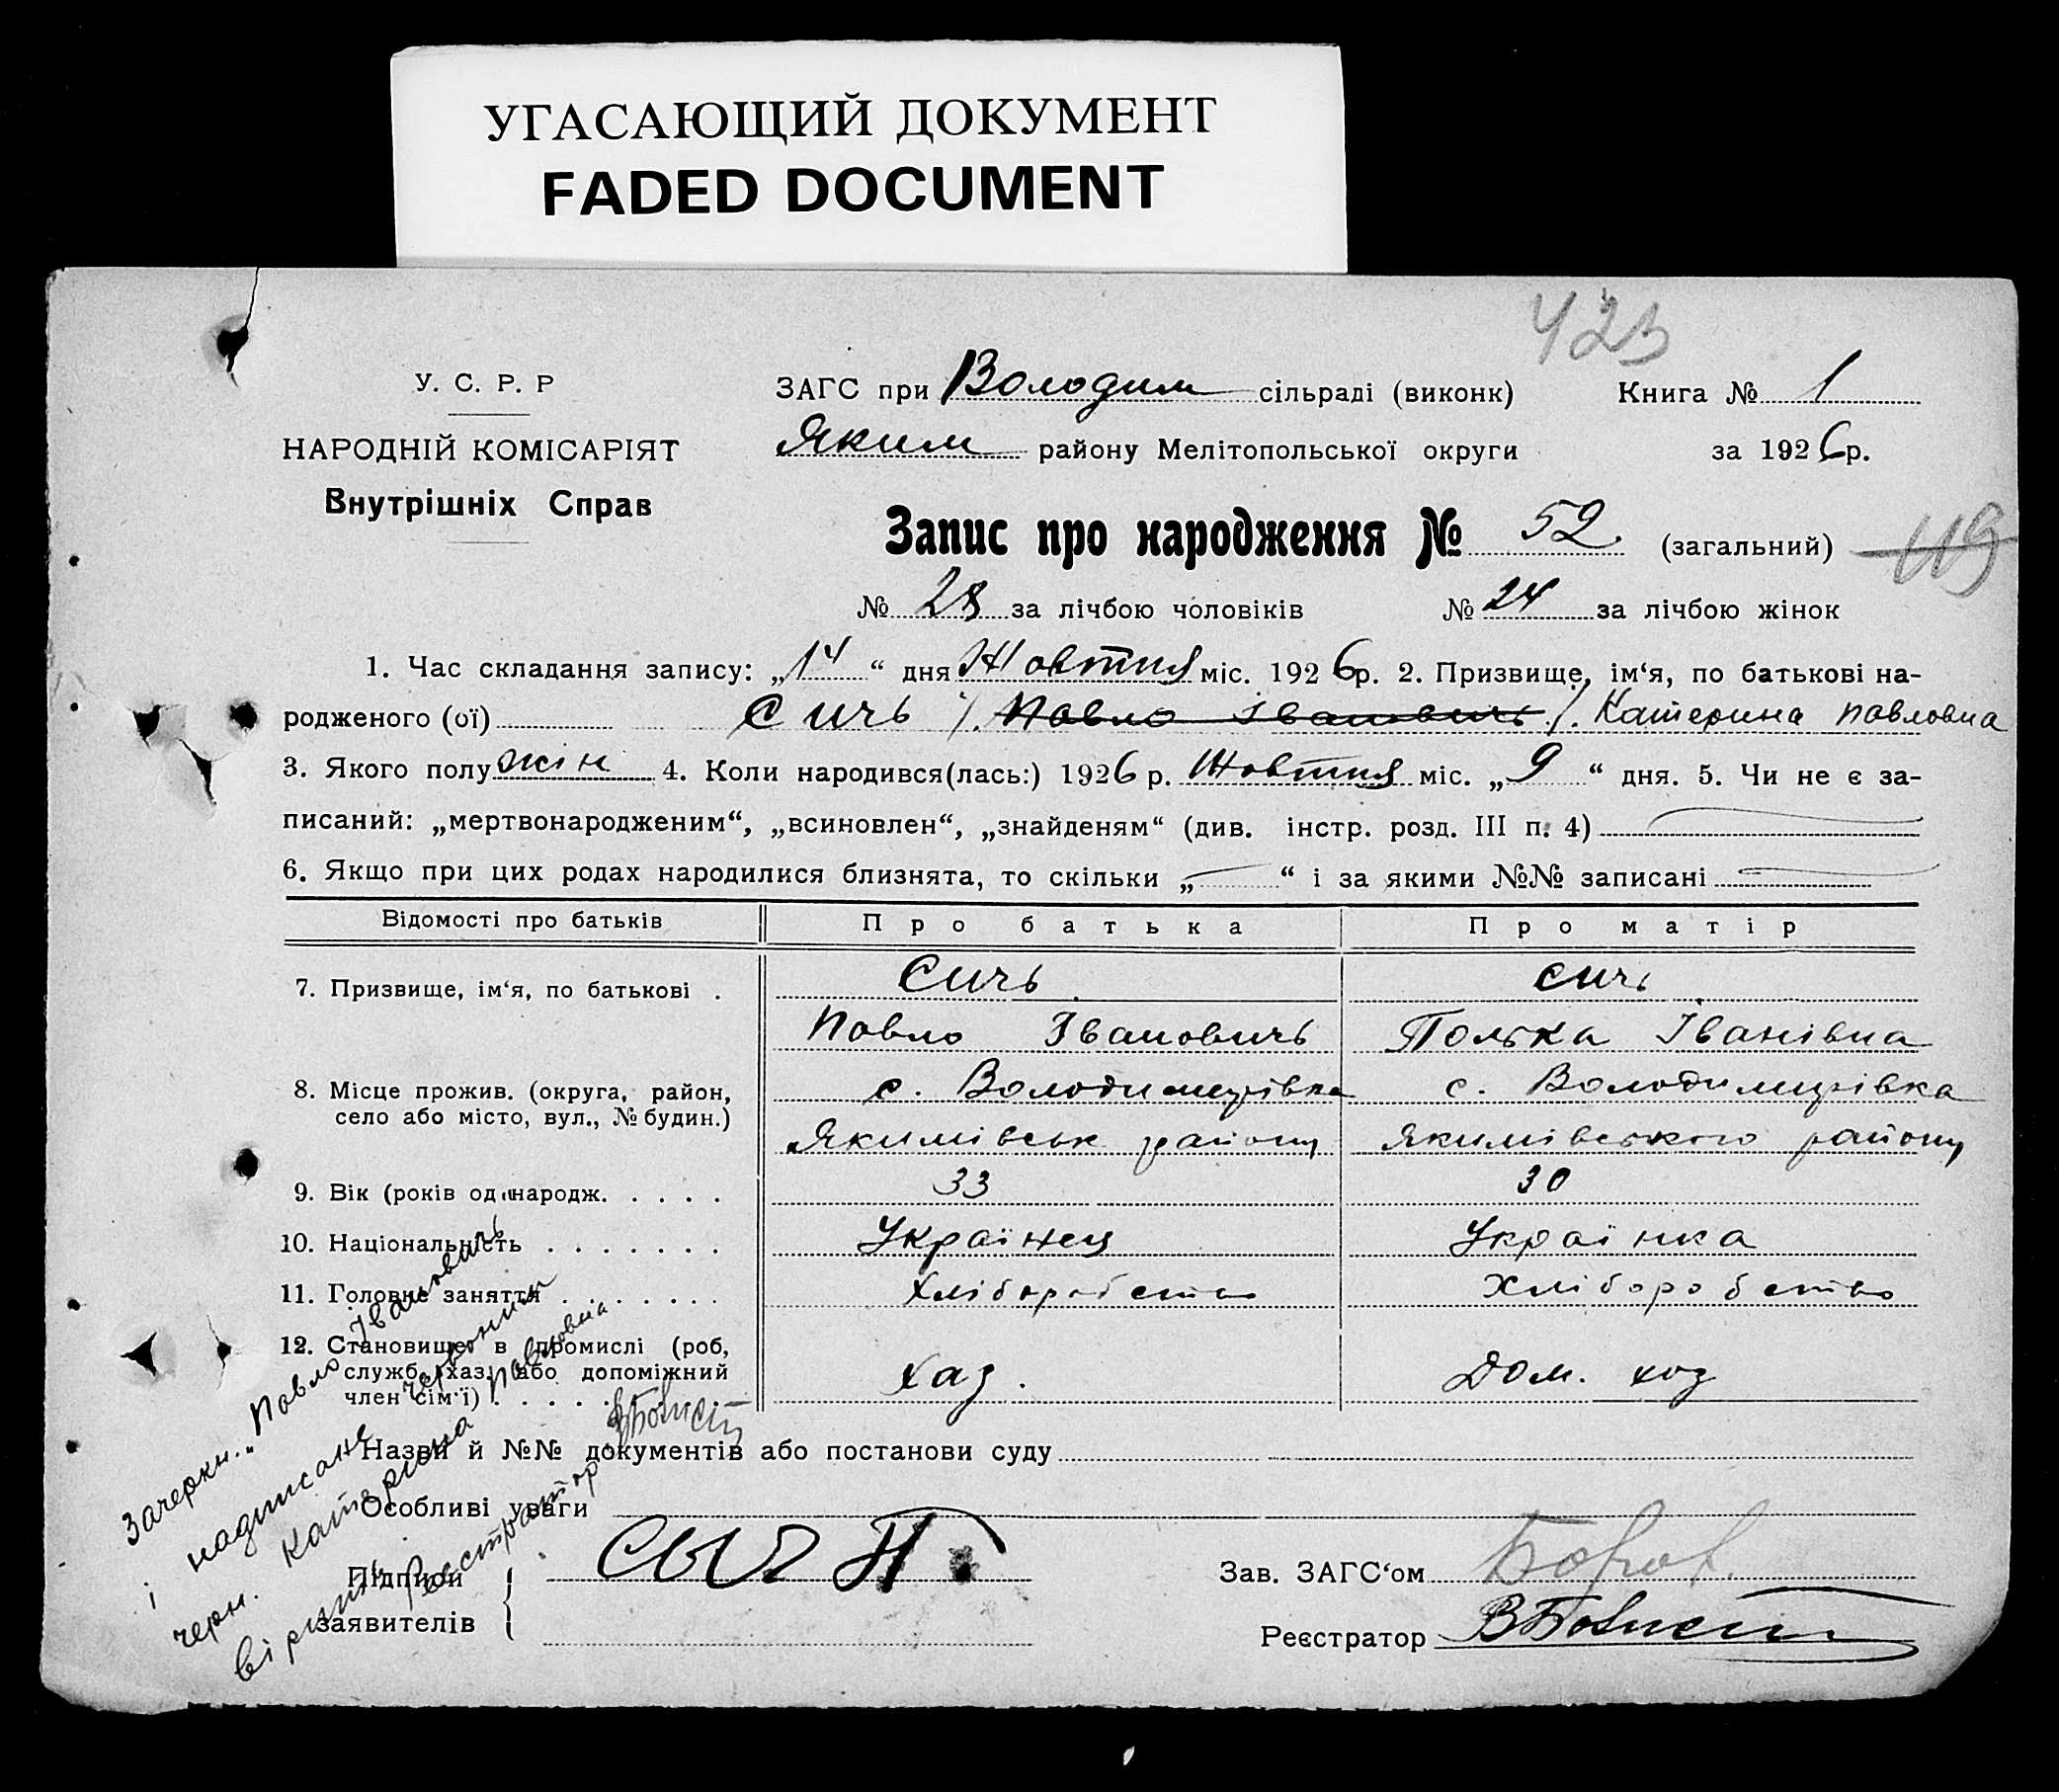 УГАСАЮЩИЙ ДОКУМЕНТ
FADED DOCUMENT
423
У. С. Р. Р
НАРОДНІЙ КОМІСАРІЯТ
Внутрішніх Справ
ЗАГС при Володим сільраді (виконк) Книга № 1
Яким району Мелітопольської округи за 1926р.
Запис про народження № 52 (загальний) 119
№ 28 за лічбою чоловіків № 24 за лічбою жінок
1. Час складання запису: „14“ дня Жовтня міс. 1926р. 2. Призвище, ім‘я, по батькові на-
родженого (ої) Сичь /. Павло Івановичь /. Катерина Павловна
3. Якого полу жін 4. Коли народився(лась:) 1926 р. Жовтня міс. „9“ дня. 5. Чи не є за-
писаний: „мертвонародженим“, „всиновлен“, „знайденям“ (див. інстр. розд. III п. 4)
6. Якщо при цих родах народилися близнята, то скільки „ “ і за якими №№ записані
Відомості про батьків Про батька Про матір
7. Призвище, ім‘я, по батькові . Сичь Сичь
Павло Івановичь Полька Іванівна
8. Місце прожив. (округа, район, с. Володимирівка с. Володимирівка
село або місто, вул., № будин.) Якимівськ району Якимівського району
9. Вік (років од народж. . . . . 33 30
10. Національність . . . . . . . Українец Українка
11. Головне заняття . . . . . . . Хліборобство Хліборобство
12. Становище в промислі (роб,
службо, хаз. або допоміжний Хаз. Дом. хоз
член сім‘ї) . . . . . . . .
Назви й №№ документів або постанови суду
Особливі уваги
Підписи Сыч П. Зав. ЗАГС‘ом
заявителів Реєстратор
Зачеркн. „Павло Івановичь
і надписане червоним
черн. Катерина Павловна
вірити Реєстратор